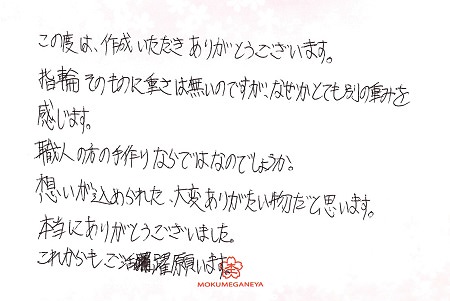 この度は、作成いただきありがとうございます。
指輪そのものに重さは無いのですが、なぜかとても別の重みを
感じます。
職人の方の手作りならではなのでしょうか。
想いが込められた、大変ありがたい物だと思います。
本当にありがとうございました。
これからもご活躍願います。
MOKUMEGANEYA